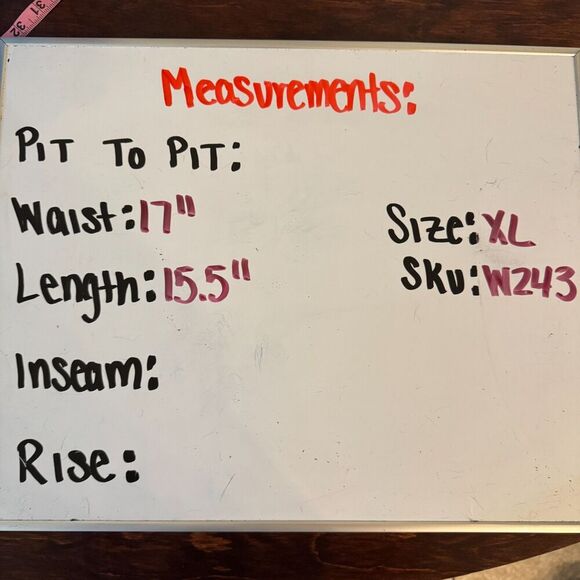 31
32
Measurements:
Pit To Pit:
Waist: 17"
Size: XL
Length: 15.5"
Sku: W243
Inseam:
Rise: